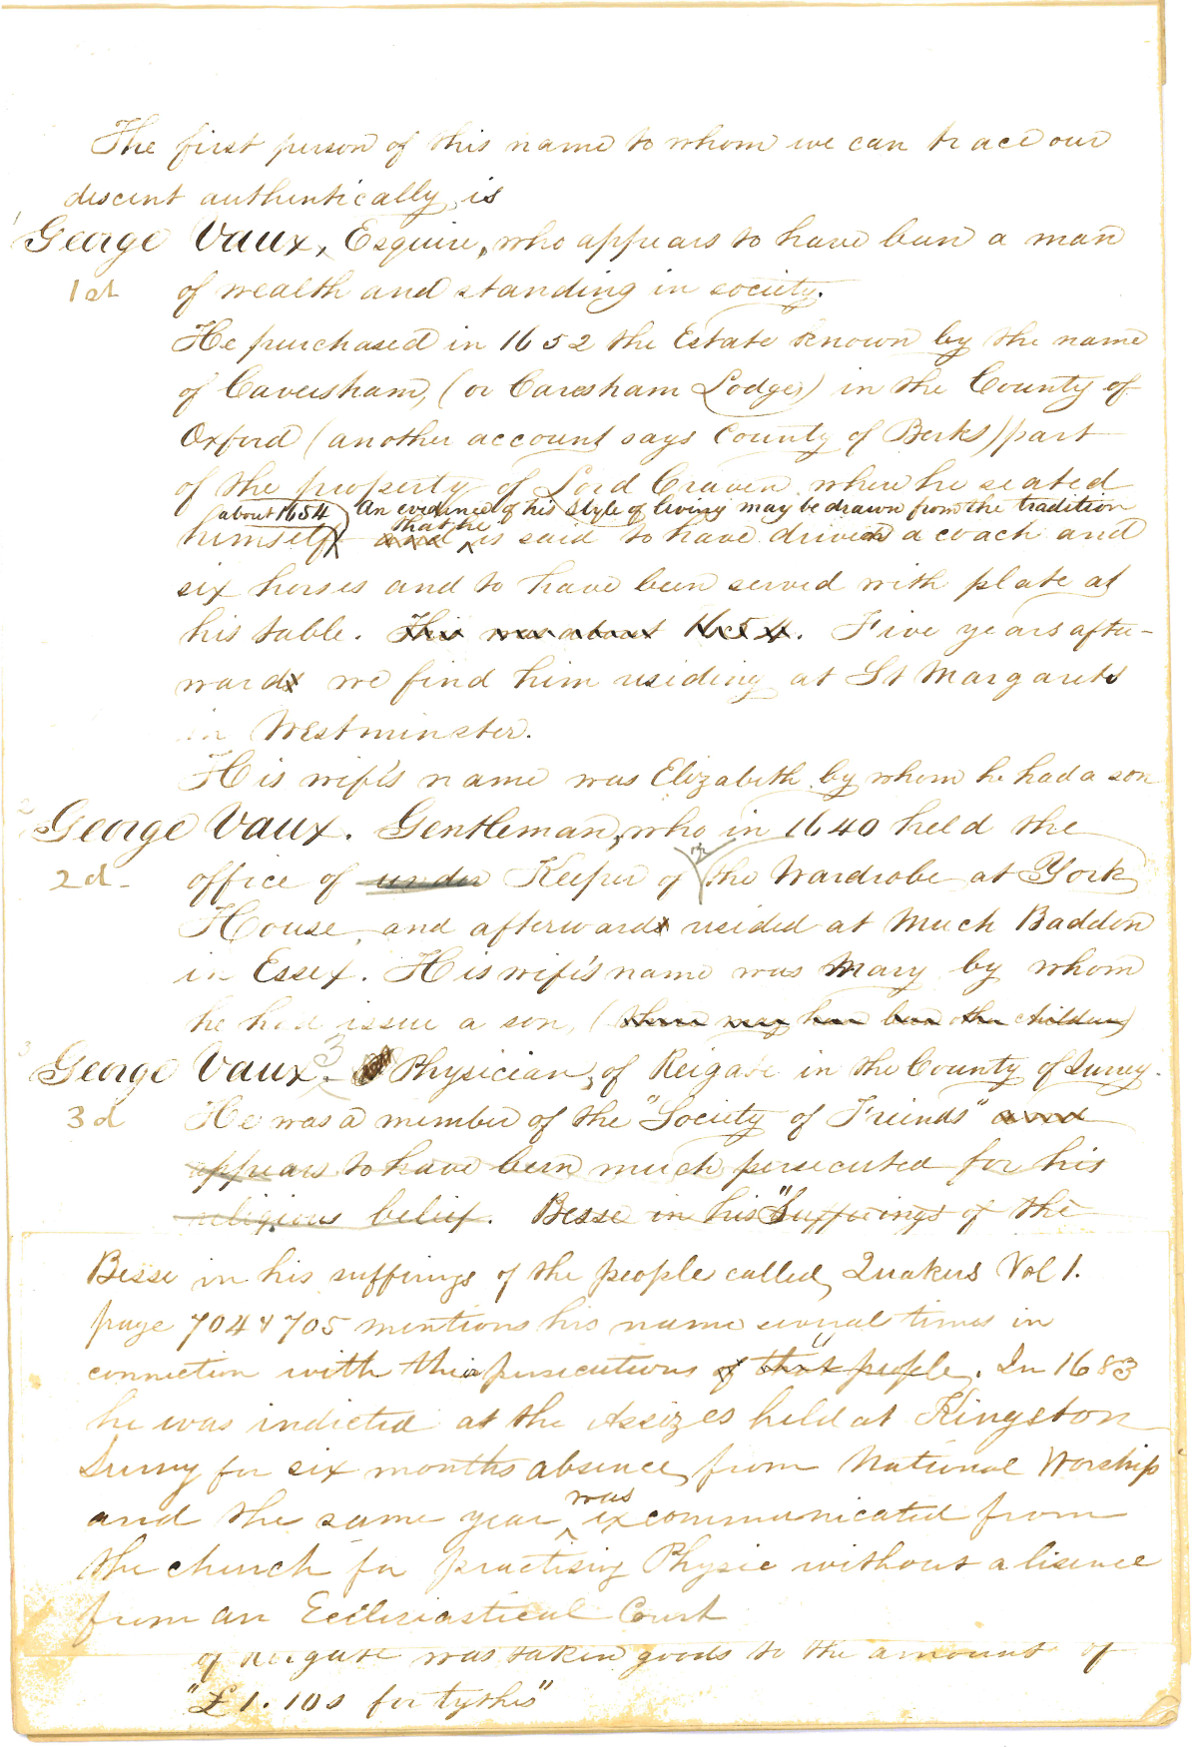 The first person of this name to whom we can trace our
descent authentically is
George Vaux, Esquire, who appears to have been a man
1st of wealth and standing in society.
He purchased in 1652 the Estate known by the name
of Caversham, (or Caresham Lodge) in the County of
Oxford (another account says County of Berks) part
of the property of Lord Craven where he seated
about 1654 An evidence of his style of living may be drawn from the tradition
that he
himself and is said to have driven a coach and
six horses and to have been served with plate at
his table. This was about 1654. Five years after-
wards we find him residing at St Margarets
in Westminster.
His wife's name was Elizabeth by whom he had a son
George Vaux. Gentleman, who in 1640 held the
2d office of under Keeper of the Wardrobe at York
House and afterwards resided at Much Baddon
in Essex. His wife's name was Mary by whom
he had issue a son, (there may have been other children)
3
George Vaux. Physician, of Reigate in the County of Surrey.
3d He was a member of the "Society of Friends" and
appears to have been much persecuted for his
religious belief. Besse in his "Sufferings of the
Besse in his sufferings of the people called Quakers Vol 1.
page 704 & 705 mentions his name several times in
connection with their persecutions of that people. In 1683
he was indicted at the Assizes held at Kingston
Surrey for six months absence from National Worship
was
and the same year excommunicated from
the church for practising Physic without a lisence
from an Ecclesiastical Court
of Reigate was taken goods to the amount of
"£1. 10s for tythes"